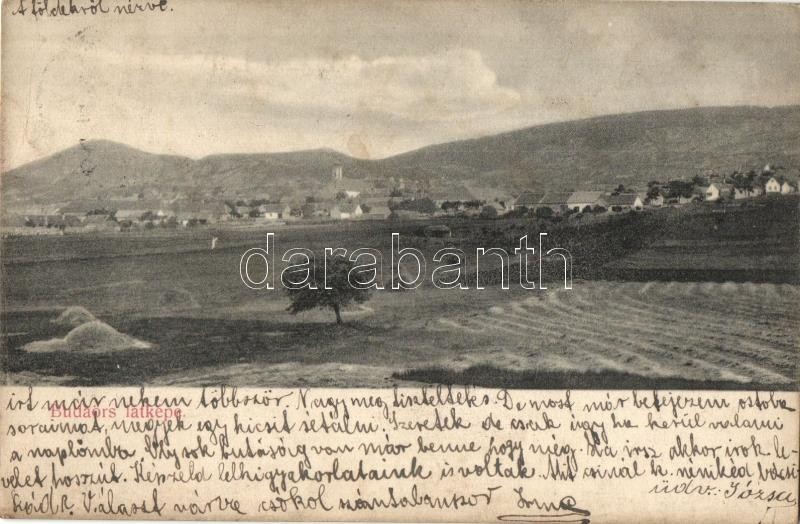 A földekről nézve.
darabanth.com
írt már nekem többször. Nagy meg tiszteltetés. De most már befejezem ostoba
Budaörs látképe.
soraimat, megyek egy kicsit sétálni. Szeretek de csak úgy ha kerül valami
a naplómba. Oly sok butaság van már benne hogy még. Ha írsz akkor írok le-
velet hosszút. Képzeld lelhigyakorlataink is voltak. Mit csinál k. nénikéd bácsi
Lipid k. Választ várva csókol számtalanszor Irma
üdv. Józsa